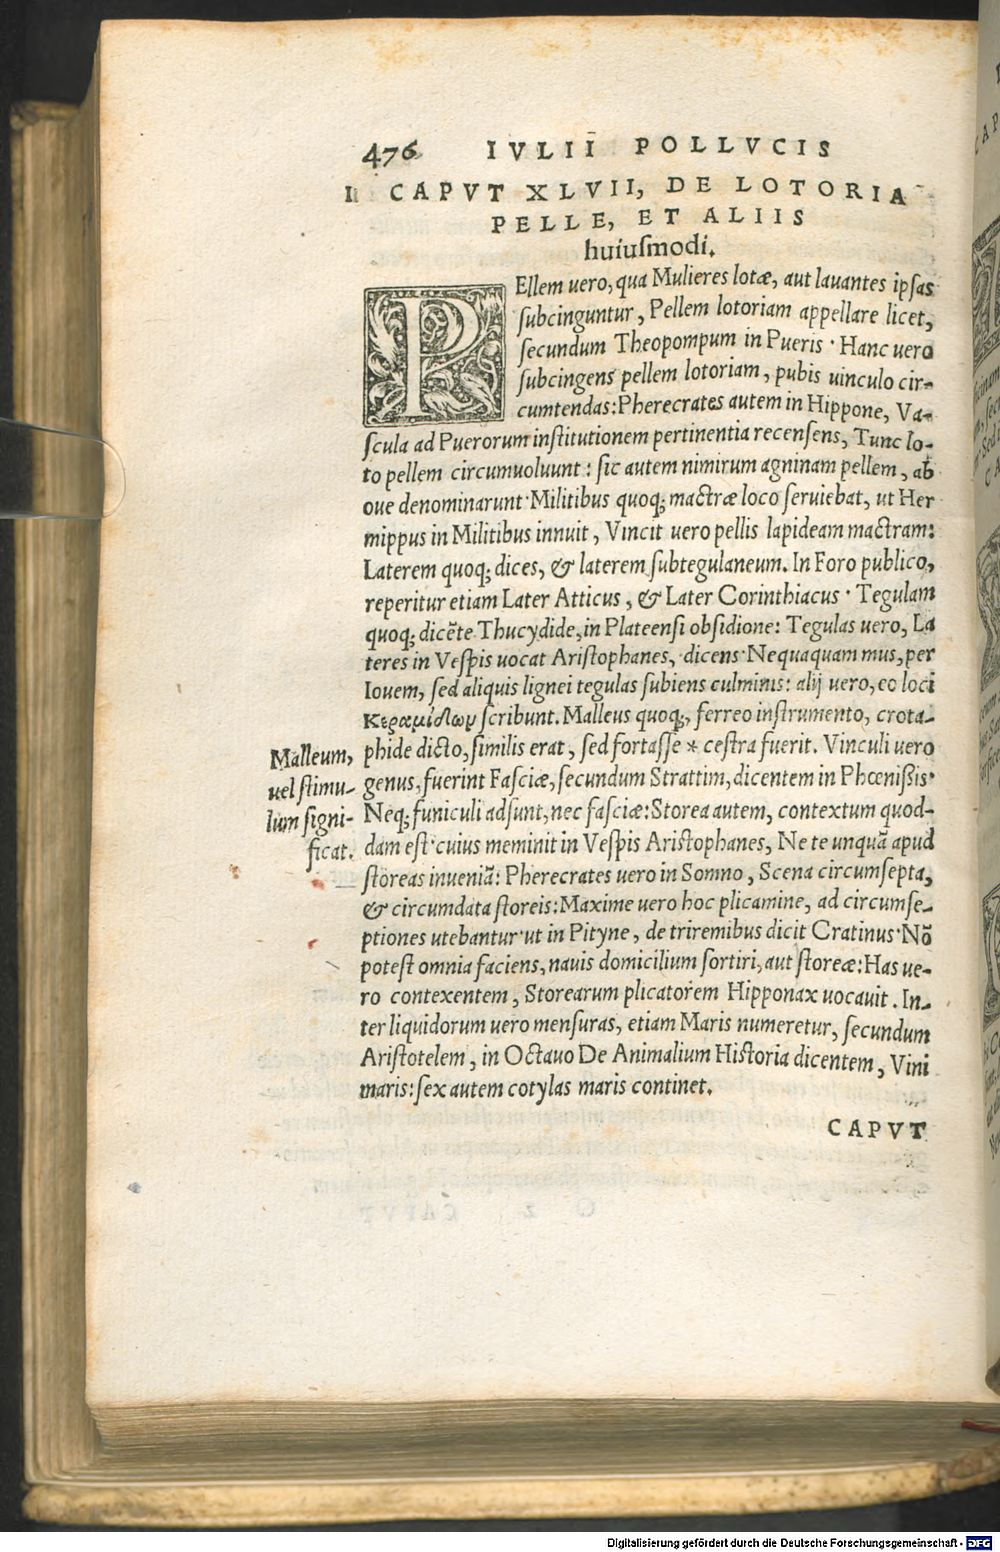 476 IVLII POLLVCIS
CAPVT XLVII, DE LOTORIA
PELLE, ET ALIIS
huiuſmodi.
PEllem uero, qua Mulieres lotæ, aut lauantes ipſas
ſubcinguntur, Pellem lotoriam appellare licet,
ſecundum Theopompum in Pueris · Hanc uero
ſubcingens pellem lotoriam, pubis uinculo cir-
cumtendas: Pherecrates autem in Hippone, Va-
ſcula ad Puerorum inſtitutionem pertinentia recenſens, Tunc lo-
to pellem circumuoluunt: ſic autem nimirum agninam pellem, ab
oue denominarunt · Militibus quoq; mactræ loco ſeruiebat, ut Her
mippus in Militibus innuit, Vincit uero pellis lapideam mactram:
Laterem quoq; dices, & laterem ſubtegulaneum. In Foro publico,
reperitur etiam Later Atticus, & Later Corinthiacus · Tegulam
quoq; dicēte Thucydide, in Plateenſi obſidione: Tegulas uero, La
teres in Veſpis uocat Ariſtophanes, dicens · Nequaquam mus, per
Iouem, ſed aliquis lignei tegulas ſubiens culminis: alij uero, eo loci
Κεραμίδωμ ſcribunt. Malleus quoq;, ferreo inſtrumento, crota-
phide dicto, ſimilis erat, ſed fortaſſe * ceſtra fuerit. Vinculi uero
genus, fuerint Faſciæ, ſecundum Strattim, dicentem in Phœniſſis ·
Neq; funiculi adſunt, nec faſciæ: Storea autem, contextum quod-
dam eſt · cuius meminit in Veſpis Ariſtophanes, Ne te unquā apud
ſtoreas inueniā: Pherecrates uero in Somno, Scena circumſepta,
& circumdata ſtoreis: Maxime uero hoc plicamine, ad circumſe-
ptiones utebantur · ut in Pityne, de triremibus dicit Cratinus · Nō
poteſt omnia faciens, nauis domicilium ſortiri, aut ſtoreæ: Has ue-
ro contexentem, Storearum plicatorem Hipponax uocauit. In-
ter liquidorum uero menſuras, etiam Maris numeretur, ſecundum
Ariſtotelem, in Octauo De Animalium Hiſtoria dicentem, Vini
maris: ſex autem cotylas maris continet.
CAPVT
Malleum,
uel ſtimu-
lum ſigni-
ficat.
Digitalisierung gefördert durch die Deutsche Forschungsgemeinschaft - DFG